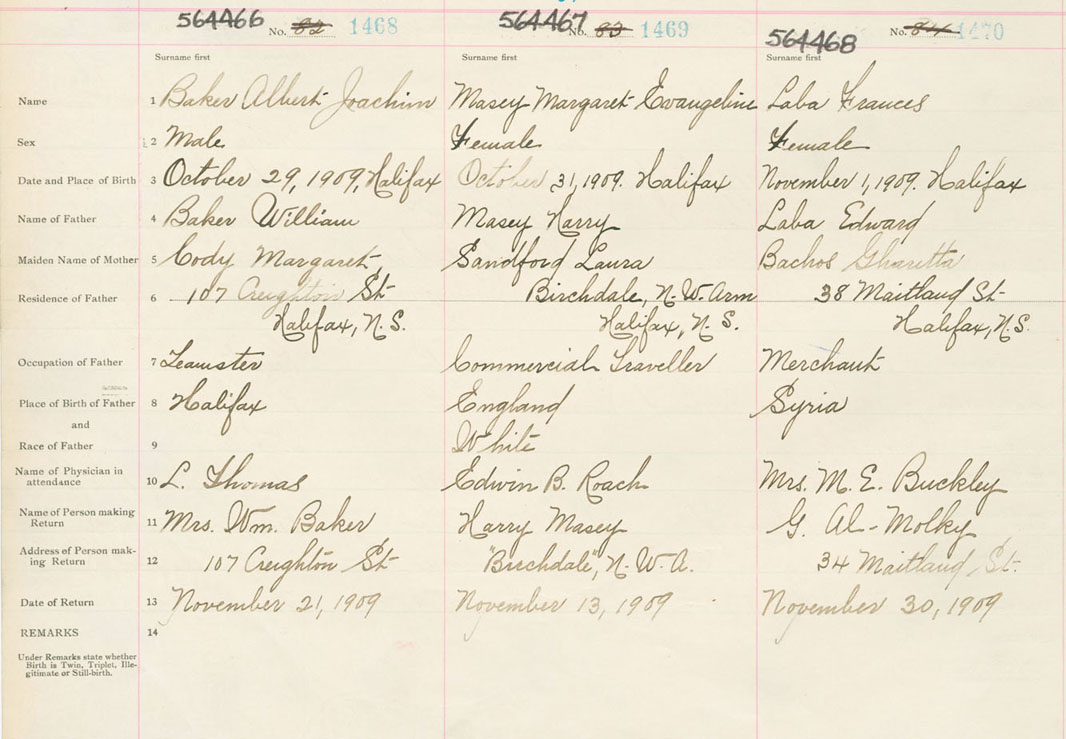 564466 No. 82 1468 564467 No. 83 1469 564468 No. 84 1470
Surname first Surname first Surname first
Name 1 Baker Albert Joachim Masey Margaret Evangeline Laba Frances
Sex 2 Male Female Female
Date and Place of Birth 3 October 29, 1909, Halifax October 31, 1909. Halifax November 1, 1909. Halifax
Name of Father 4 Baker William Masey Harry Laba Edward
Maiden Name of Mother 5 Cody Margaret Sandford Laura Bachos Gharetta
Residence of Father 6 107 Creighton St- Birchdale, N.W. Arm 38 Maitland St-
Halifax, N.S. Halifax, N.S. Halifax, N.S.
Occupation of Father 7 Teamster Commercial Traveller Merchant
Place of Birth of Father 8 Halifax England Syria
and
Race of Father 9 White
Name of Physician in attendance 10 L. Thomas Edwin B. Roach Mrs. M. E. Buckley
Name of Person making Return 11 Mrs. Wm. Baker Harry Masey G. Al-Molky
Address of Person mak-
ing Return 12 107 Creighton St- "Birchdale", N.W.A. 34 Maitland St.
Date of Return 13 November 21, 1909 November 13, 1909 November 30, 1909
REMARKS 14
Under Remarks state whether
Birth is Twin, Triplet, Ille-
gitimate or Still-birth.